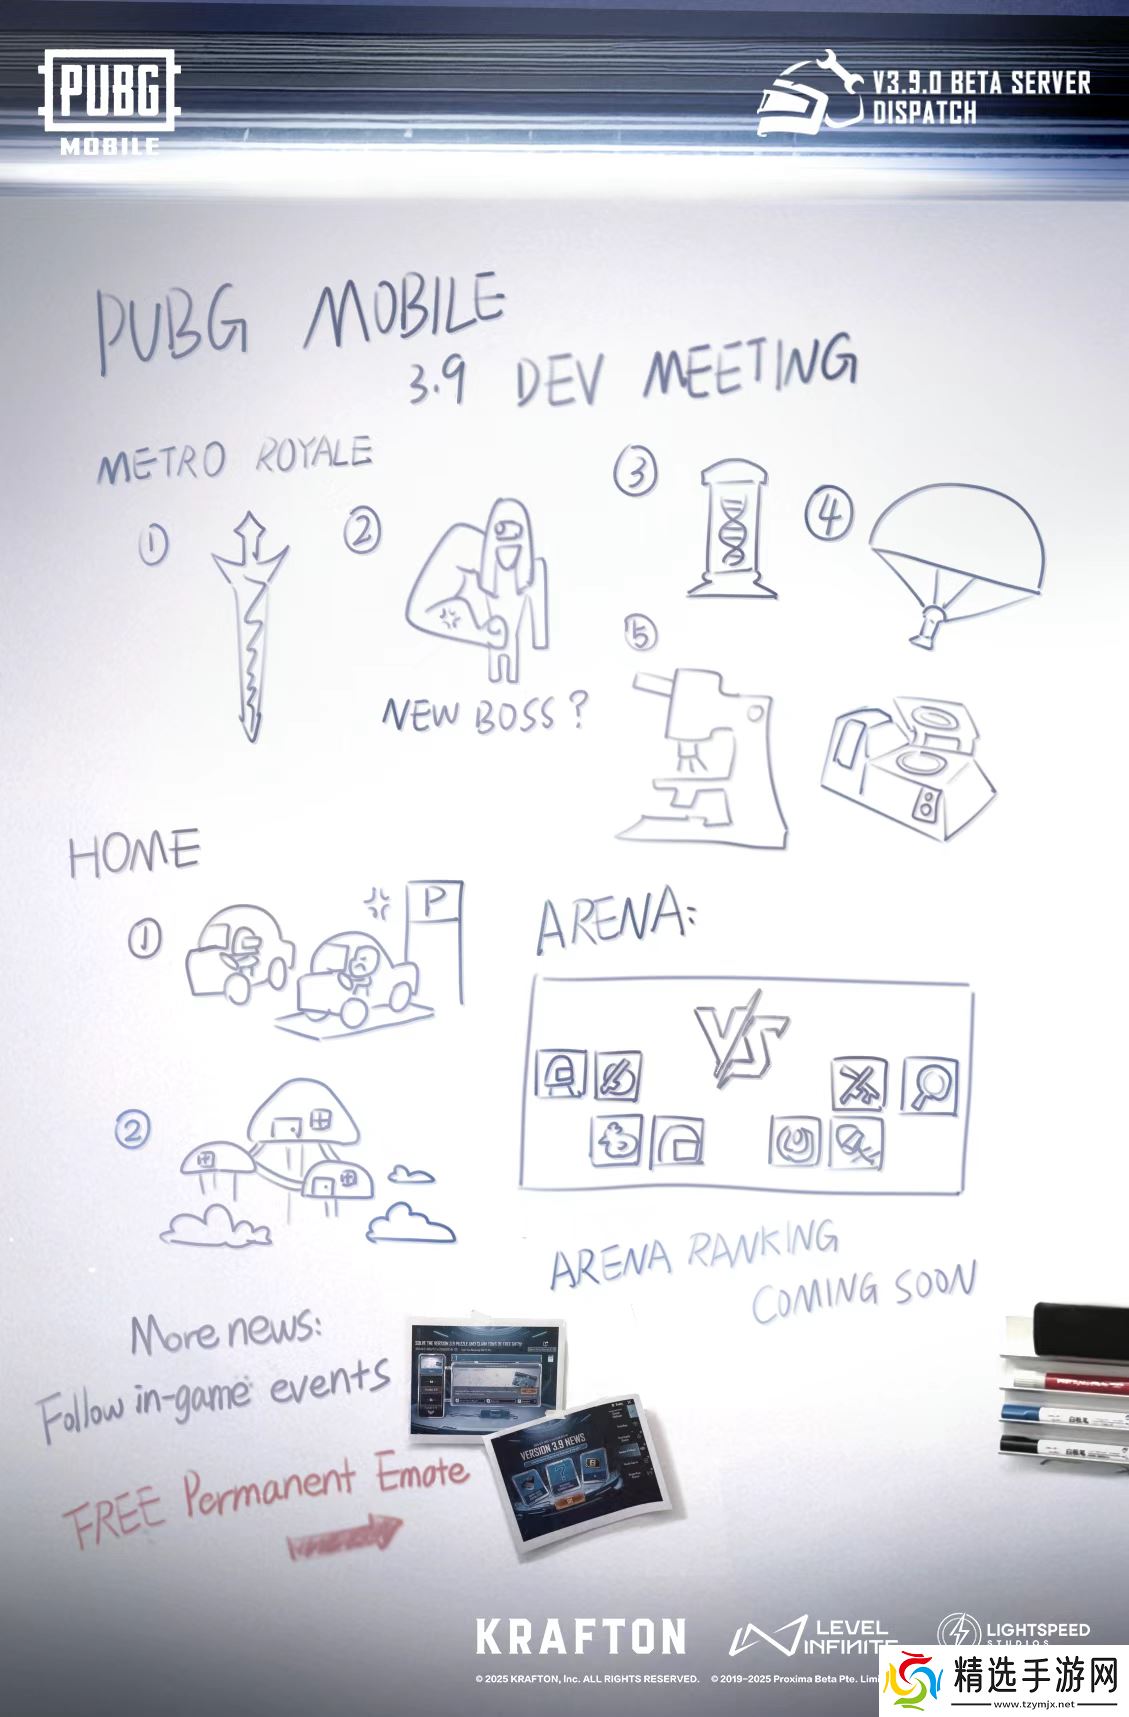 PUBG
MOBILE
V3.9.0 BETA SERVER
DISPATCH
PUBG MOBILE
3.9 DEV MEETING
METRO ROYALE
①
②
③
④
⑤
NEW BOSS?
HOME
①
P
②
ARENA:
VS
ARENA RANKING
COMING SOON
More news:
Follow in-game events
FREE Permanent Emote
SOLVE THE VERSION 3.9 PUZZLE AND CLAIM TONS OF FREE GIFTS!
VERSION 3.9 NEWS
KRAFTON
LEVEL
INFINITE
LIGHTSPEED
STUDIOS
© 2025 KRAFTON, Inc. ALL RIGHTS RESERVED.
© 2019-2025 Proxima Beta Pte. Limi
精选手游网
www.tzymjx.net